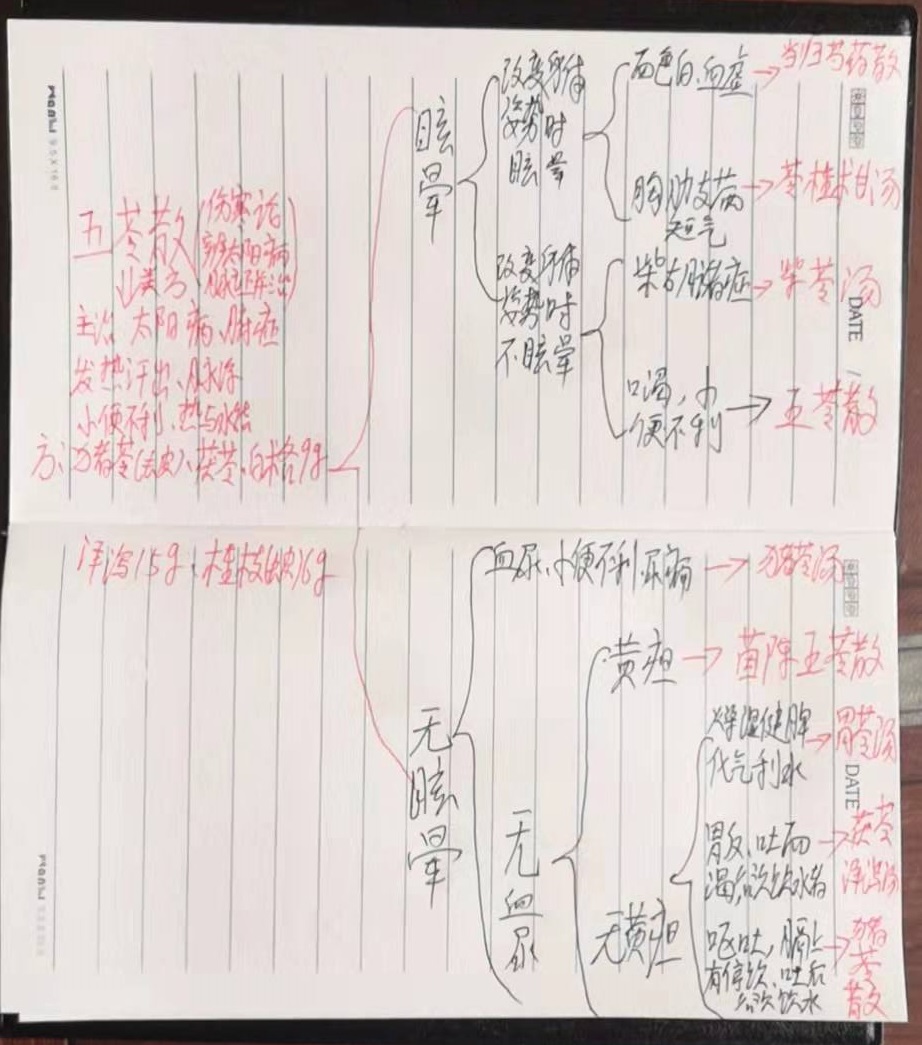 五苓散
(伤寒论
辨太阳病
脉证并治)
类方
主治 太阳病、腑症
发热汗出、脉浮
小便不利、热与水结
方: 猪苓(去皮)、茯苓、白术各9g
泽泻15g、桂枝(去皮)6g
眩晕
改变身体
姿势时
眩晕
面色白、血虚→当归芍药散
胸胁支满→苓桂术甘汤
短气
改变身体
姿势时
不眩晕
柴胡腑症→柴苓汤
口渴,小
便不利→五苓散
无眩晕
血尿、小便不利、尿痛→猪苓汤
无血尿
黄疸→茵陈五苓散
无黄疸
燥湿健脾→胃苓汤
化气利水
胃反、吐而→茯苓
渴,欲饮水者 泽泻汤
呕吐,膈上→猪苓散
有停饮、吐后
欲饮水
DATE /
DATE